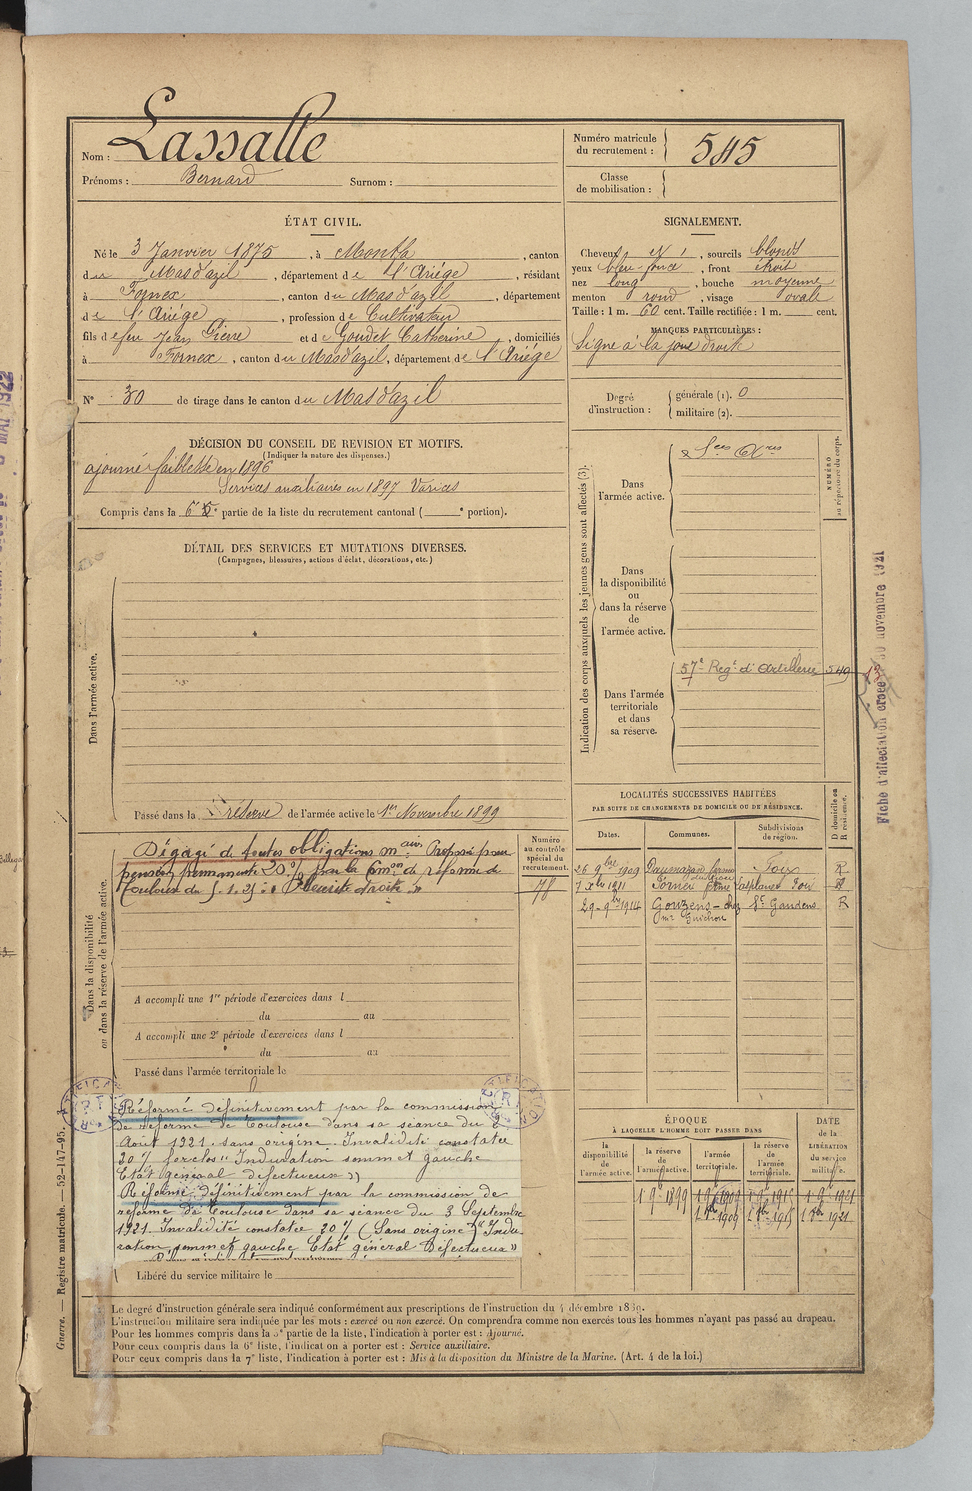 Nom : Lassalle
Prénoms : Bernard Surnom :
Numéro matricule
du recrutement : 545
Classe
de mobilisation :
ÉTAT CIVIL.
Né le 3 Janvier 1875, à Montfa, canton
du Masdazil, département de l'Ariége, résidant
à Fornex, canton du Mas d'azil, département
de l'Ariége, profession de Cultivateur
fils de feu Jean Pierre et de Goudet Catherine, domiciliés
à Fornex, canton du Masdazil, département de l'Ariége
N° 30 de tirage dans le canton du Masdazil
SIGNALEMENT.
Cheveux et, sourcils blonds
yeux bleu foncé, front étroit
nez long, bouche moyenne
menton rond, visage ovale
Taille : 1 m. 60 cent. Taille rectifiée : 1 m. cent.
MARQUES PARTICULIÈRES :
Signe à la joue droite
Degré
d'instruction :
générale (1). 0
militaire (2).
DÉCISION DU CONSEIL DE REVISION ET MOTIFS.
(Indiquer la nature des dispenses.)
ajourné faiblesse en 1896
Services auxiliaires en 1897 Varices
Compris dans la 6e partie de la liste du recrutement cantonal ( e portion).
DÉTAIL DES SERVICES ET MUTATIONS DIVERSES.
(Campagnes, blessures, actions d'éclat, décorations, etc.)
Dans l'armée active.
Passé dans la réserve de l'armée active le 1er Novembre 1899
Indication des corps auxquels les jeunes gens sont affectés (3).
NUMÉRO
au répertoire du corps.
Dans
l'armée active.
Sces Axres
Dans
la disponibilité
ou
dans la réserve
de
l'armée active.
57e Regt d'Artillerie 549
13
Dans l'armée
territoriale
et dans
sa réserve.
Fiche d'affectation créée le 30 novembre 1921
MAI 1922
Dans la disponibilité
ou dans la réserve de l'armée active.
Dégagé de toutes obligations mres Proposé pour
pension permanente 30% par la Con de réforme de
Toulouse du 5.1.25 : « Pleurite droite »
Numéro
au contrôle
spécial du
recrutement.
78
A accompli une 1re période d'exercices dans l
du au
A accompli une 2e période d'exercices dans l
du au
Passé dans l'armée territoriale le
Réformé définitivement par la commission
de réforme de Toulouse dans sa séance du
Août 1921. sans origine. Invalidité constatée
20% forclos "Induration sommet gauche
Etat général défectueux"
Réformé définitivement par la commission de
réforme de Toulouse dans sa séance du 3 Septembre
1921. Invalidité constatée 20% (Sans origine) "Indu-
ration sommet gauche Etat général Défectueux"
Libéré du service militaire le
LOCALITÉS SUCCESSIVES HABITÉES
PAR SUITE DE CHANGEMENTS DE DOMICILE OU DE RÉSIDENCE.
Dates. Communes. Subdivisions
de région. D domicile ou
R résidence.
26 9bre 1909 Daumazan Foix R
7 Xbre 1911 Fornex Foix R
29 - 9bre 1914 Gouzens - chez St Gaudens R
Mr Guichou
ÉPOQUE
À LAQUELLE L'HOMME DOIT PASSER DANS
DATE
de la
LIBÉRATION
du service
militaire.
la
disponibilité
de l'armée
active.
la réserve
de
l'armée active.
l'armée
territoriale.
la réserve
de
l'armée
territoriale.
1 9bre 1899 1 9bre 1909 1 9bre 1915 1 9bre 1921
1 8bre 1909 1 8bre 1915 1 8bre 1921
Guerre. — Registre matricule. — 52-147-95.
Le degré d'instruction générale sera indiqué conformément aux prescriptions de l'instruction du 4 décembre 1889.
L'instruction militaire sera indiquée par les mots : exercé ou non exercé. On comprendra comme non exercés tous les hommes n'ayant pas passé au drapeau.
Pour les hommes compris dans la 5e partie de la liste, l'indication à porter est : Ajourné.
Pour ceux compris dans la 6e liste, l'indication à porter est : Service auxiliaire.
Pour ceux compris dans la 7e liste, l'indication à porter est : Mis à la disposition du Ministre de la Marine. (Art. 4 de la loi.)